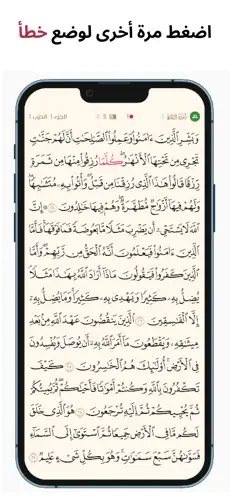 اضغط مرة أخرى لوضع خطأ
سورة البقرة 1 5 الجزء 1 الحزب 1
وَبَشِّرِ ٱلَّذِينَ ءَامَنُوا۟ وَعَمِلُوا۟ ٱلصَّٰلِحَٰتِ أَنَّ لَهُمْ جَنَّٰتٍ
تَجْرِى مِن تَحْتِهَا ٱلْأَنْهَٰرُ ۖ كُلَّمَا رُزِقُوا۟ مِنْهَا مِن ثَمَرَةٍ
رِّزْقًا ۙ قَالُوا۟ هَٰذَا ٱلَّذِى رُزِقْنَا مِن قَبْلُ ۖ وَأُتُوا۟ بِهِۦ مُتَشَٰبِهًا ۖ
وَلَهُمْ فِيهَآ أَزْوَٰجٌ مُّطَهَّرَةٌ ۖ وَهُمْ فِيهَا خَٰلِدُونَ ٢٥ ۞ إِنَّ
ٱللَّهَ لَا يَسْتَحْىِۦٓ أَن يَضْرِبَ مَثَلًا مَّا بَعُوضَةً فَمَا فَوْقَهَا ۚ فَأَمَّا
ٱلَّذِينَ ءَامَنُوا۟ فَيَعْلَمُونَ أَنَّهُ ٱلْحَقُّ مِن رَّبِّهِمْ ۖ وَأَمَّا
ٱلَّذِينَ كَفَرُوا۟ فَيَقُولُونَ مَاذَآ أَرَادَ ٱللَّهُ بِهَٰذَا مَثَلًا ۘ
يُضِلُّ بِهِۦ كَثِيرًا وَيَهْدِى بِهِۦ كَثِيرًا ۚ وَمَا يُضِلُّ بِهِۦٓ
إِلَّا ٱلْفَٰسِقِينَ ٢٦ ٱلَّذِينَ يَنقُضُونَ عَهْدَ ٱللَّهِ مِنۢ بَعْدِ
مِيثَٰقِهِۦ وَيَقْطَعُونَ مَآ أَمَرَ ٱللَّهُ بِهِۦٓ أَن يُوصَلَ وَيُفْسِدُونَ
فِى ٱلْأَرْضِ ۚ أُو۟لَٰٓئِكَ هُمُ ٱلْخَٰسِرُونَ ٢٧ كَيْفَ
تَكْفُرُونَ بِٱللَّهِ وَكُنتُمْ أَمْوَٰتًا فَأَحْيَٰكُمْ ۖ ثُمَّ يُمِيتُكُمْ
ثُمَّ يُحْيِيكُمْ ثُمَّ إِلَيْهِ تُرْجَعُونَ ٢٨ هُوَ ٱلَّذِى خَلَقَ
لَكُم مَّا فِى ٱلْأَرْضِ جَمِيعًا ثُمَّ ٱسْتَوَىٰٓ إِلَى ٱلسَّمَآءِ
فَسَوَّىٰهُنَّ سَبْعَ سَمَٰوَٰتٍ ۚ وَهُوَ بِكُلِّ شَىْءٍ عَلِيمٌ ٢٩